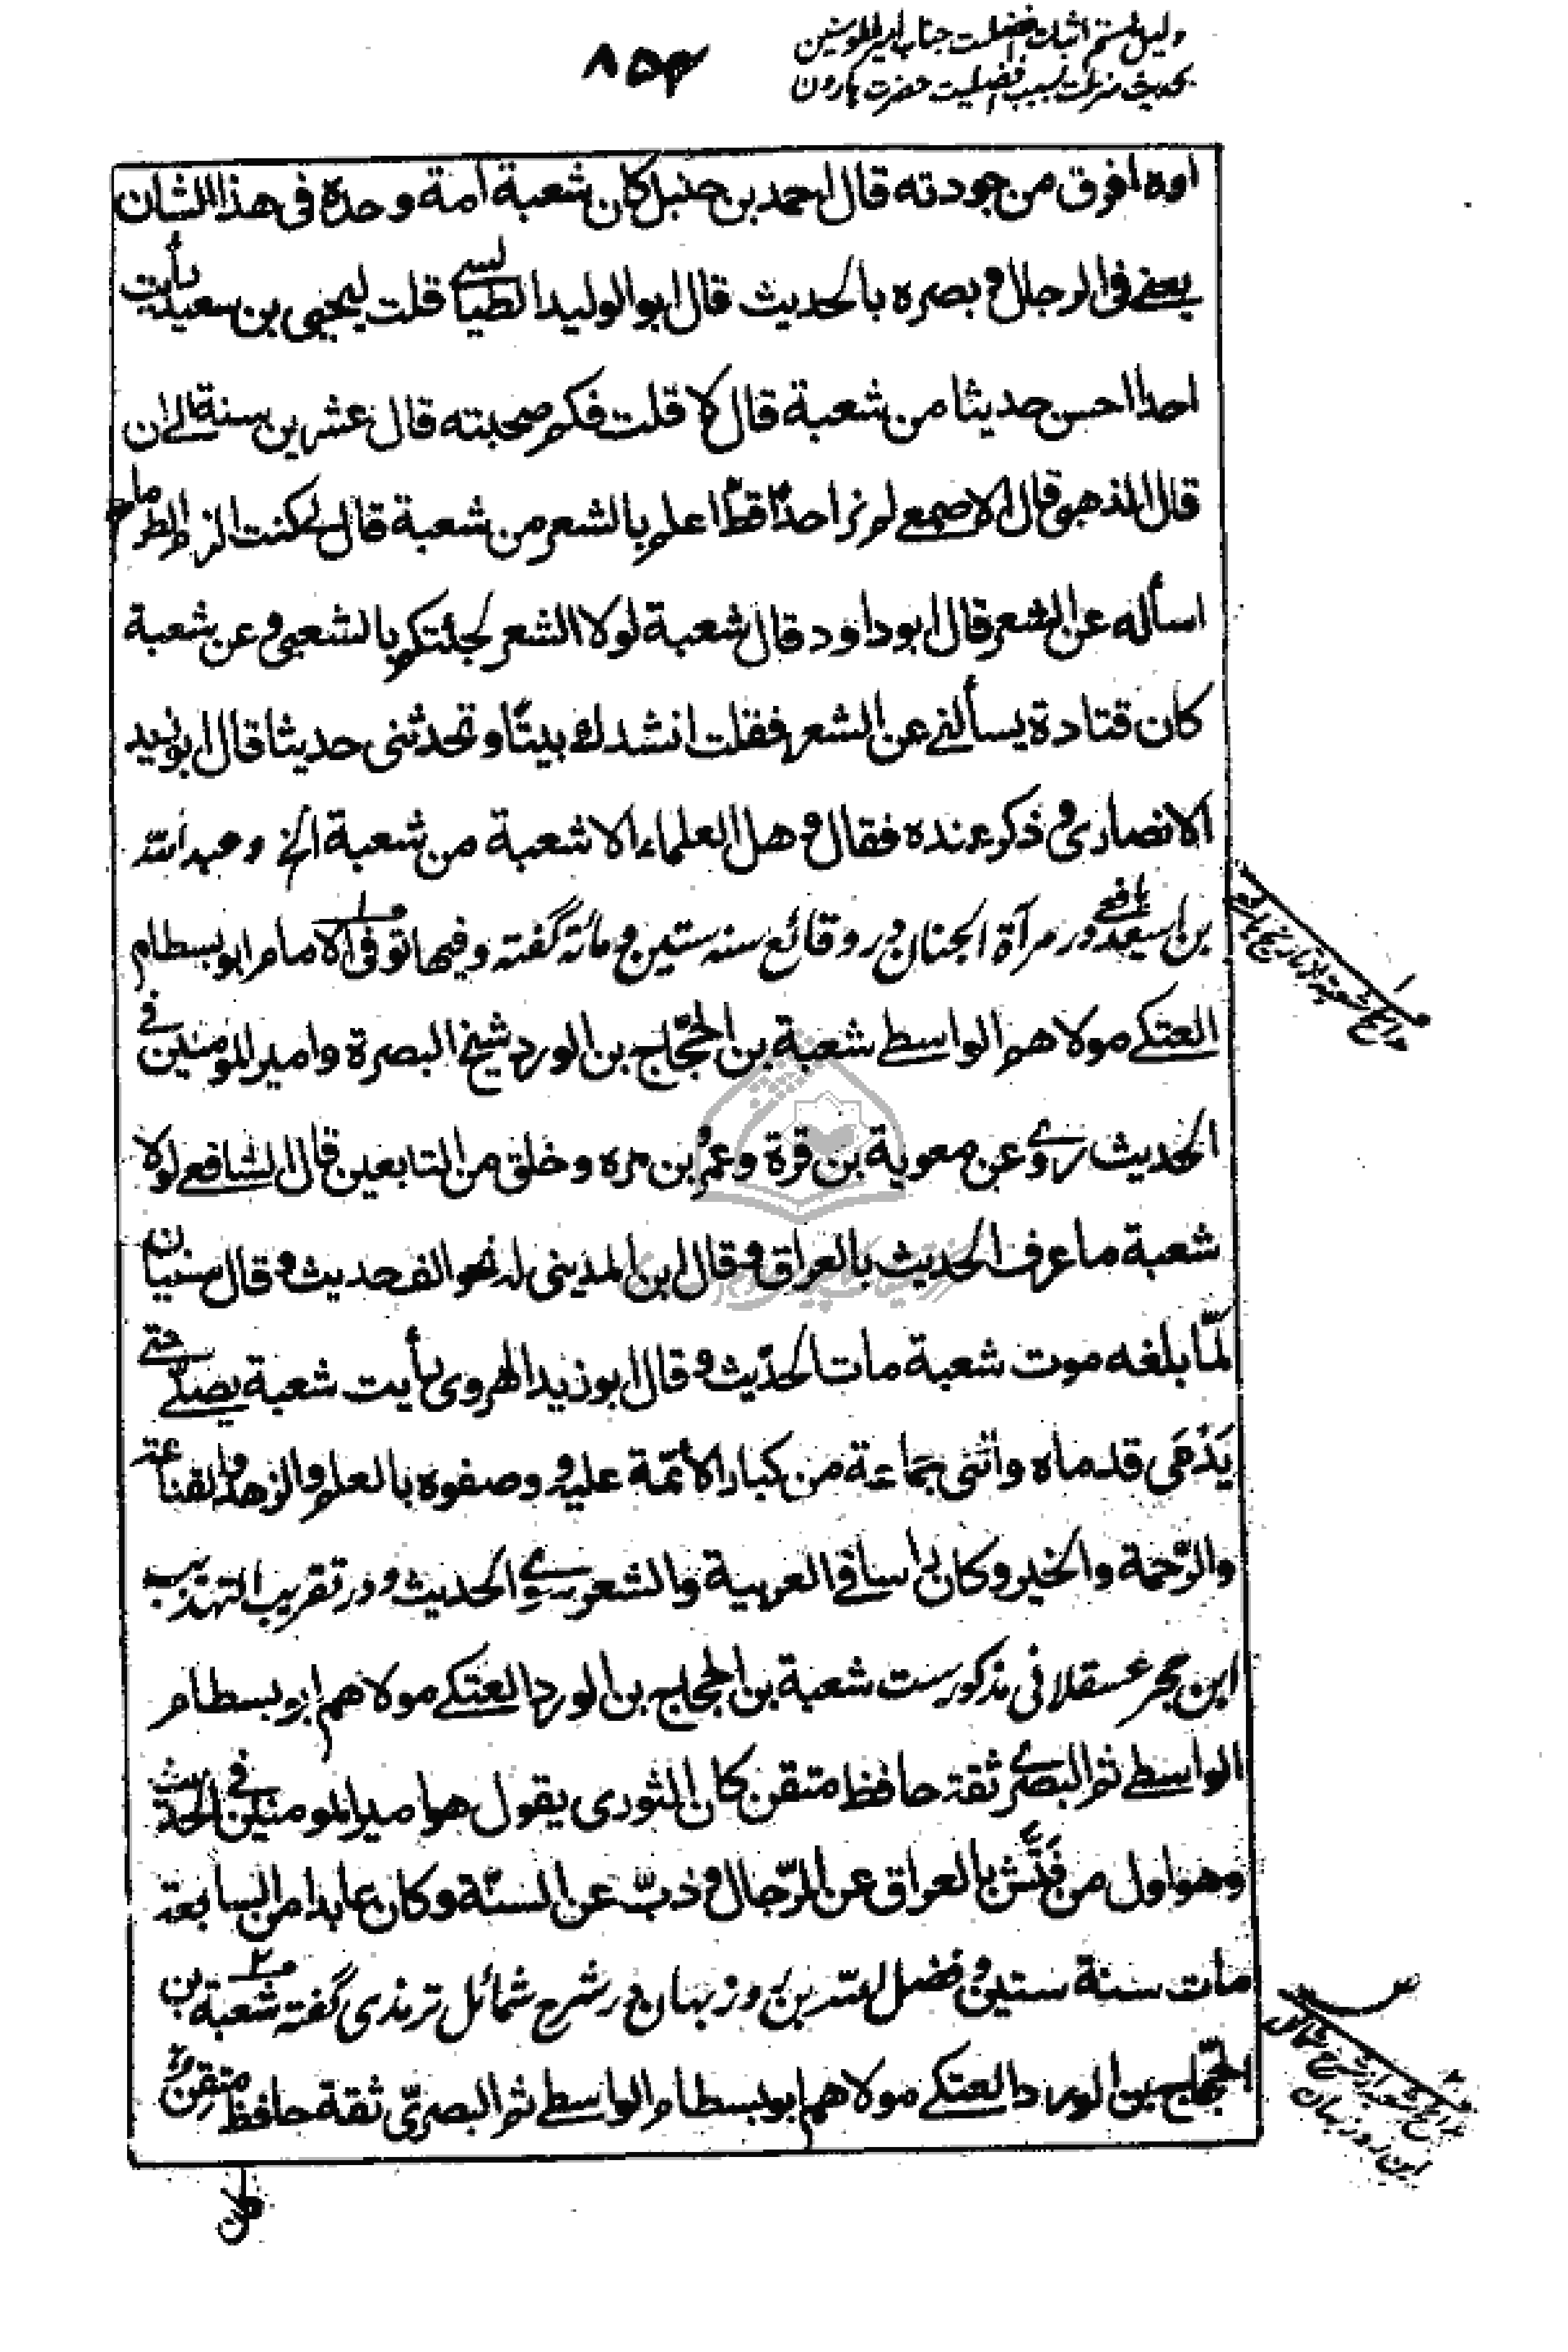 دلیل ستم اثبات افضلیت جناب امیر المومنین
بحدیث منزلت بسبب افضلیت حضرت هارون
اوه افرق من جودته قال احمد بن حنبل كان شعبة أمة وحده فی هذا الشان
یعنی فی الرجال و بصره بالحدیث قال ابو الولید الطیالسی قلت لیحیی بن سعید رأیت
احدا احسن حدیثا من شعبة قال لا قلت فکم صحبته قال عشرین سنة الی ان
قال الذهبی قال الاصمعی لم نر احدًا قطّ اعلم بالشعر من شعبة قال لی کنت الزم الطرماح
اسأله عن الشعر قال ابو داود قال شعبة لولا الشعر لجئتکم بالشعبی و عن شعبة
کان قتادة یسألنی عن الشعر فقلت انشدك بیتًا و تحدثنی حدیثا قال ابو زید
الانصاری و ذکر عنده فقال و هل العلماء الا شعبة من شعبة الخ و عبد الله
بن اسعد یافعی در مرآة الجنان در وقائع سنه ستین و مائة گفته و فیها توفی الامام ابو بسطام
العتکی مولاهم الواسطی شعبة بن الحجّاج بن الورد شیخ البصرة و امیر المومنین فی
الحدیث روی عن معویة بن قرة و عمرو بن مره و خلق من التابعین قال الشافعی لولا
شعبة ما عرف الحدیث بالعراق و قال ابن المدینی له نحو الف حدیث و قال سفیان
لمّا بلغه موت شعبة مات الحدیث و قال ابو زید الهروی رأیت شعبة یصلّی حتی
یَدْمَی قدماه و اثنی جماعة من کبار الأئمّة علیه و وصفوه بالعلم و الزهد و القناعة
و الرّحمة و الخیر و کان رأسا فی العربیة و الشعر سوی الحدیث و در تقریب التهذیب
ابن حجر عسقلانی مذکورست شعبة بن الحجاج بن الورد العتکی مولاهم ابو بسطام
الواسطی ثم البصری ثقة حافظ متقن کان الثوری یقول هو امیر المومنین فی الحدیث
و هو اول من فَتَّش بالعراق عن الرّجال و ذبّ عن السنّة و کان عابدا من السابعة
مات سنة ستین و فضل الله بن روزبهان در شرح شمائل ترمذی گفته شعبة بن
الحجّاج بن الورد العتکی مولاهم ابو بسطام الواسطی ثم البصریّ ثقة حافظ متقن و
مدائح شعبه از تاریخ یافعی
مدائح شعبه از شرح شمائل
ابن روزبهان
کان